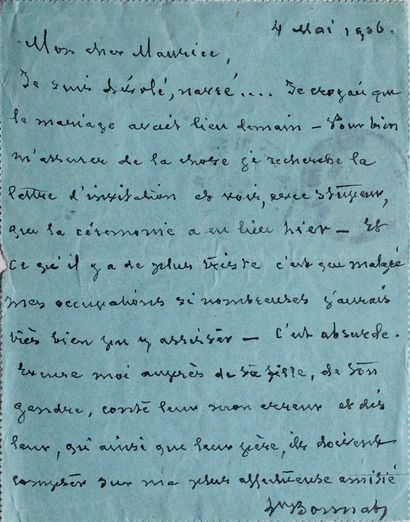 4 Mai 1906.
Mon cher Maurice,
Je suis désolé, navré.... Je croyais que
le mariage avait lieu demain - Pour bien
m'assurer de la chose je recherche la
lettre d'invitation et vois, avec stupeur,
que la cérémonie a eu lieu hier - Et
ce qu'il y a de plus triste c'est que malgré
mes occupations si nombreuses j'aurais
très bien pu y assister - C'est absurde.
Excuse moi auprès de ta fille, de ton
gendre, conte leur mon erreur et dis
leur, qu'ainsi que leur père, ils doivent
compter sur ma plus affectueuse amitié
Ln Bonnat